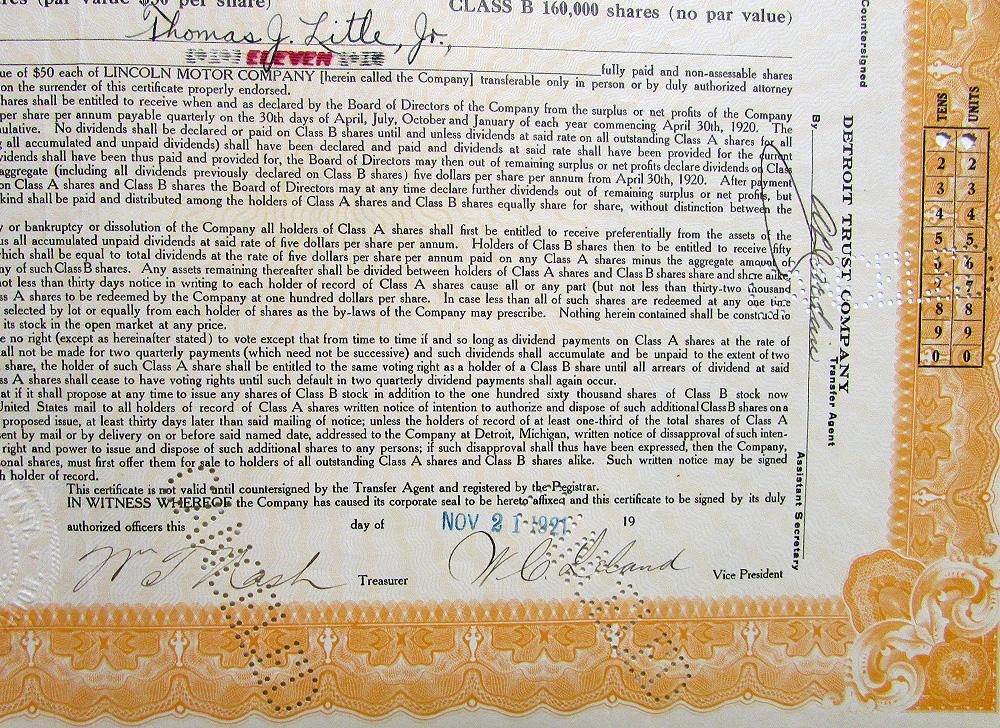 res (par value $50 per share)
CLASS B 160,000 shares (no par value)
Thomas J. Litle, Jr.,
ELEVEN
fully paid and non-assessable shares
ue of $50 each of LINCOLN MOTOR COMPANY [herein called the Company] transferable only in person or by duly authorized attorney
on the surrender of this certificate properly endorsed.
hares shall be entitled to receive when and as declared by the Board of Directors of the Company from the surplus or net profits of the Company
per share per annum payable quarterly on the 30th days of April, July, October and January of each year commencing April 30th, 1920. The
ulative. No dividends shall be declared or paid on Class B shares until and unless dividends at said rate on all outstanding Class A shares for all
g all accumulated and unpaid dividends) shall have been declared and paid and dividends at said rate shall have been provided for the current
vidends shall have been thus paid and provided for, the Board of Directors may then out of remaining surplus or net profits declare dividends on Class
aggregate (including all dividends previously declared on Class B shares) five dollars per share per annum from April 30th, 1920. After payment
on Class A shares and Class B shares the Board of Directors may at any time declare further dividends out of remaining surplus or net profits, but
kind shall be paid and distributed among the holders of Class A shares and Class B shares equally share for share, without distinction between the
y or bankruptcy or dissolution of the Company all holders of Class A shares shall first be entitled to receive preferentially from the assets of the
us all accumulated unpaid dividends at said rate of five dollars per share per annum. Holders of Class B shares then to be entitled to receive fifty
which shall be equal to total dividends at the rate of five dollars per share per annum paid on any Class A shares minus the aggregate amount of
ny of such Class B shares. Any assets remaining thereafter shall be divided between holders of Class A shares and Class B shares share and share alike,
not less than thirty days notice in writing to each holder of record of Class A shares cause all or any part (but not less than thirty-two thousand
ss A shares to be redeemed by the Company at one hundred dollars per share. In case less than all of such shares are redeemed at any one time
selected by lot or equally from each holder of shares as the by-laws of the Company may prescribe. Nothing herein contained shall be construed to
its stock in the open market at any price.
e no right (except as hereinafter stated) to vote except that from time to time if and so long as dividend payments on Class A shares at the rate of
all not be made for two quarterly payments (which need not be successive) and such dividends shall accumulate and be unpaid to the extent of two
share, the holder of such Class A share shall be entitled to the same voting right as a holder of a Class B share until all arrears of dividend at said
ss A shares shall cease to have voting rights until such default in two quarterly dividend payments shall again occur.
at if it shall propose at any time to issue any shares of Class B stock in addition to the one hundred sixty thousand shares of Class B stock now
United States mail to all holders of record of Class A shares written notice of intention to authorize and dispose of such additional Class B shares on a
proposed issue, at least thirty days later than said mailing of notice; unless the holders of record of at least one-third of the total shares of Class A
ent by mail or by delivery on or before said named date, addressed to the Company at Detroit, Michigan, written notice of disapproval of such inten-
right and power to issue and dispose of such additional shares to any persons; if such disapproval shall thus have been expressed, then the Company,
onal shares, must first offer them for sale to holders of all outstanding Class A shares and Class B shares alike. Such written notice may be signed
h holder of record.
This certificate is not valid until countersigned by the Transfer Agent and registered by the Registrar.
IN WITNESS WHEREOF the Company has caused its corporate seal to be hereto affixed and this certificate to be signed by its duly
authorized officers this day of NOV 21 1921 19
Wm T Nash Treasurer W. C. Leland Vice President
Countersigned
DETROIT TRUST COMPANY
Transfer Agent
By
Assistant Secretary
TENS UNITS
2 2
3 3
4 4
5 5
6 6
7 7
8 8
9 9
0 0